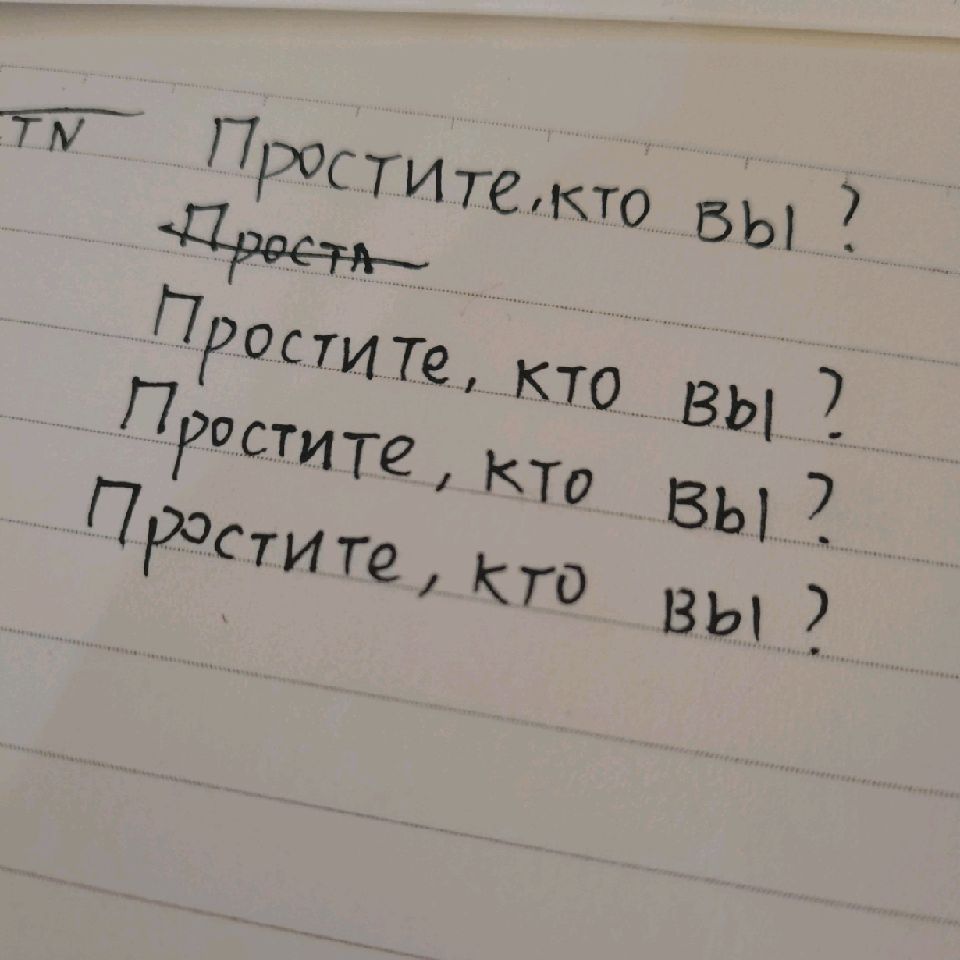 TN Простите, кто вы?
Проста
Простите, кто вы?
Простите, кто вы?
Простите, кто вы?